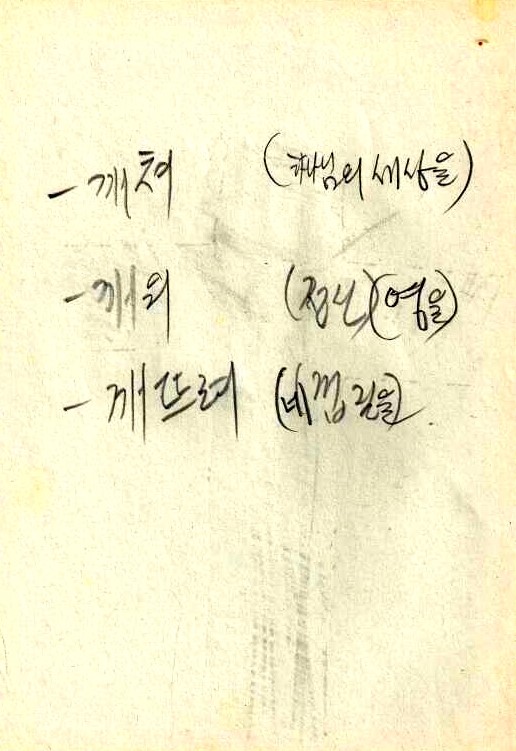 - 깨쳐 (하나님의 세상을)
- 깨워 (정신) (영을)
- 깨뜨려 (네 껍질을)